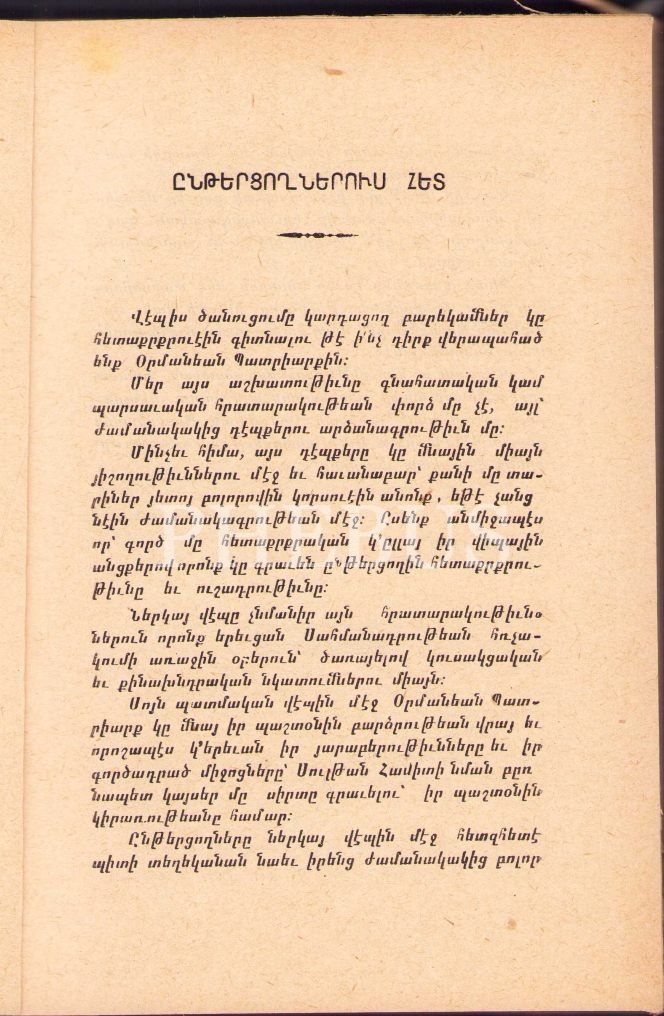 ԸՆԹԵՐՑՈՂՆԵՐՈՒՍ ՀԵՏ
Վէպիս ծանուցումը կարդացող բարեկամներ կը
հետաքրքրուէին գիտնալու թէ ի՛նչ դիրք վերապահած
ենք Օրմանեան Պատրիարքին։
Մեր այս աշխատութիւնը գնահատական կամ
պարսաւական հրատարակութեան փորձ մը չէ, այլ՝
ժամանակակից դէպքերու արձանագրութիւն մը։
Մինչեւ հիմա, այս դէպքերը կը մնային միայն
յիշողութիւններու մէջ եւ հաւանաբար՝ քանի մը տա-
րիներ յետոյ բոլորովին կորսուէին անոնք, եթէ չանց
նէին ժամանակագրութեան մէջ։ Ըսենք անմիջապէս
որ՝ գործ մը հետաքրքրական կ՚ըլլայ իր վիպային
անցքերով որոնք կը գրաւեն ընթերցողին հետաքրքրու-
թիւնը եւ ուշադրութիւնը։
Ներկայ վէպը չնմանիր այն հրատարակութիւն-
ներուն որոնք երեւցան Սահմանադրութեան հռչա-
կումի առաջին օրերուն՝ ծառայելով կուսակցական
եւ քինախնդրական նկատումներու միայն։
Սոյն պատմական վէպին մէջ Օրմանեան Պատ-
րիարք կը մնայ իր պաշտօնին բարձրութեան վրայ եւ
որոշապէս կ՚երեւան իր յարաբերութիւնները եւ իր
գործադրած միջոցները՝ Սուլթան Համիտի նման բըռ
նապետ կայսեր մը սիրտը գրաւելու՝ իր պաշտօնին
կիրառութեանը համար։
Ընթերցողները ներկայ վէպին մէջ հետզհետէ
պիտի տեղեկանան նաեւ իրենց ժամանակակից բոլոր